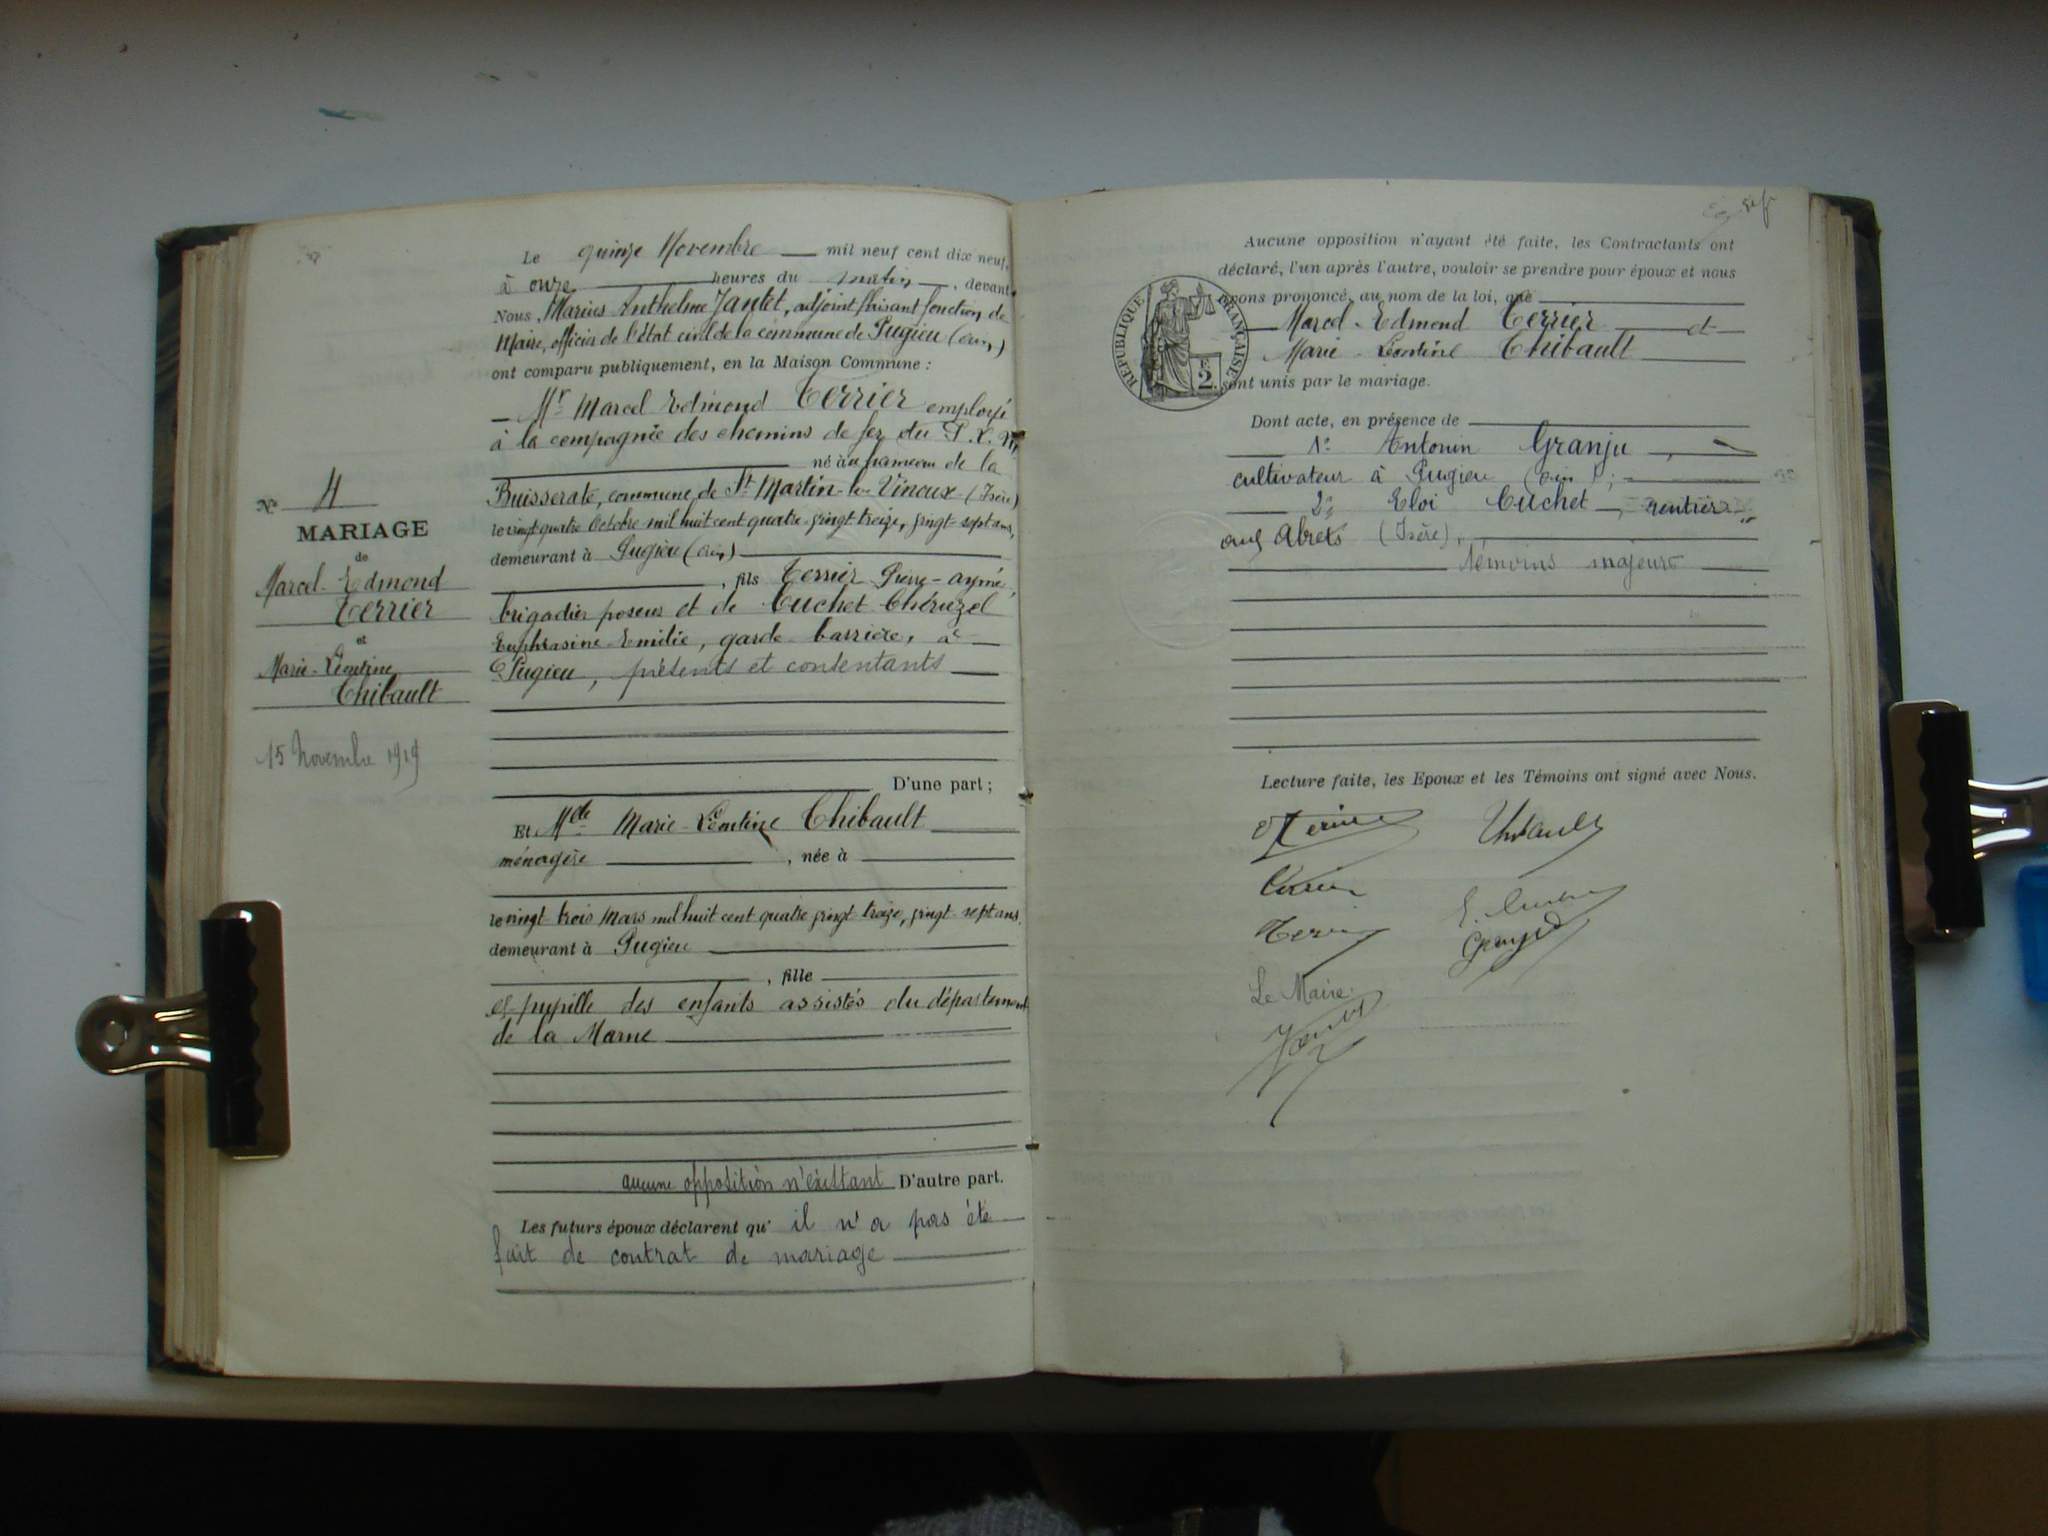 Le quinze Novembre mil neuf cent dix neuf,
à onze heures du matin, devant
Nous Marius Anthelme Jantet, adjoint faisant fonction de
Maire, officier de l'état civil de la commune de Pugieu (Ain)
ont comparu publiquement, en la Maison Commune :
Mr Marcel Edmond Terrier employé
à la compagnie des chemins de fer du P. L. M,
né au hameau de la
Buisserate, commune de St Martin-le-Vinoux (Isère)
le vingt quatre Octobre mil huit cent quatre-vingt-treize, vingt-sept ans,
demeurant à Pugieu (Ain)
, fils Terrier Pierre-aymé,
brigadier poseur et de Cuchet Chéruzel
Euphrasine-Emilie, garde-barrière, à
Pugieu, présents et contentants
D'une part ;
Nº 4
MARIAGE
de
Marcel-Edmond
Terrier
et
Marie-Léontine
Thibault
15 Novembre 1919
Et Mlle Marie-Léontine Thibault
ménagère, née à
le vingt-trois Mars mil huit cent quatre vingt-treize, vingt-sept ans,
demeurant à Pugieu
, fille
et pupille des enfants assistés du département
de la Marne
aucune opposition n'existant D'autre part.
Les futurs époux déclarent qu'il n'a pas été
fait de contrat de mariage
Aucune opposition n'ayant été faite, les Contractants ont
déclaré, l'un après l'autre, vouloir se prendre pour époux et nous
avons prononcé, au nom de la loi, que
Marcel-Edmond Terrier et
Marie-Léontine Thibault
sont unis par le mariage.
RÉPUBLIQUE FRANÇAISE
2 F.
Dont acte, en présence de
1º Antonin Granju,
cultivateur à Pugieu (Ain) ;
2º Eloi Cuchet, rentier
aux Abrets (Isère),
témoins majeurs
Lecture faite, les Epoux et les Témoins ont signé avec Nous.
Terrier Thibault
Terrier
E. Cuchet
Terrier
Granju
Le Maire
Jantet